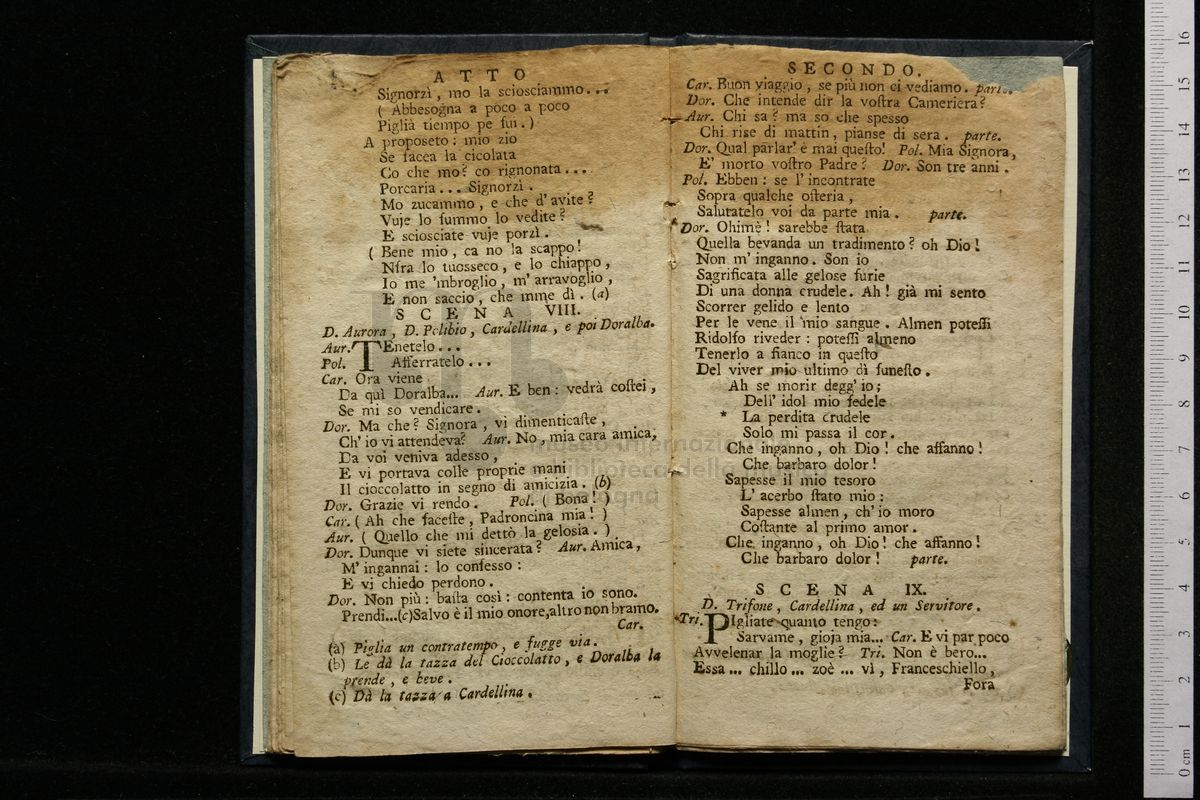 ATTO
Signorzì, mo la sciosciammo...
( Abbesogna a poco a poco
Piglià tiempo pe fui. )
A proposeto: mio zio
Se facea la cicolata
Co che mo? co rignonata...
Porcaria... Signorzì.
Mo zucammo, e che d'avite?
Vuje lo fummo lo vedite?
E sciosciate vuje porzì.
( Bene mio, ca no la scappo!
Nfra lo tuosseco, e lo chiappo,
Io me 'mbroglio, m'arravoglio,
E non saccio, che mme dì. (a)
SCENA VIII.
D. Aurora, D. Polibio, Cardellina, e poi Doralba.
Aur. TEnetelo...
Pol. Afferratelo...
Car. Ora viene
Da quì Doralba... Aur. E ben: vedrà costei,
Se mi so vendicare.
Dor. Ma che? Signora, vi dimenticaste,
Ch'io vi attendeva? Aur. No, mia cara amica,
Da voi veniva adesso,
E vi portava colle proprie mani
Il cioccolatto in segno di amicizia. (b)
Dor. Grazie vi rendo. Pol. ( Bona! )
Car. ( Ah che faceste, Padroncina mia! )
Aur. ( Quello che mi dettò la gelosia. )
Dor. Dunque vi siete sincerata? Aur. Amica,
M'ingannai: lo confesso:
E vi chiedo perdono.
Dor. Non più: basta così: contenta io sono.
Prendi...(c)Salvo è il mio onore, altro non bramo.
Car.
(a) Piglia un contratempo, e fugge via.
(b) Le dà la tazza del Cioccolatto, e Doralba la
prende, e beve.
(c) Dà la tazza a Cardellina.
SECONDO.
Car. Buon viaggio, se più non ci vediamo. parte.
Dor. Che intende dir la vostra Cameriera?
Aur. Chi sa? ma so che spesso
Chi rise di mattin, pianse di sera. parte.
Dor. Qual parlar' è mai questo! Pol. Mia Signora,
E' morto vostro Padre? Dor. Son tre anni.
Pol. Ebben: se l'incontrate
Sopra qualche osteria,
Salutatelo voi da parte mia. parte.
Dor. Ohimè! sarebbe stata
Quella bevanda un tradimento? oh Dio!
Non m'inganno. Son io
Sagrificata alle gelose furie
Di una donna crudele. Ah! già mi sento
Scorrer gelido e lento
Per le vene il mio sangue. Almen potessi
Ridolfo riveder: potessi almeno
Tenerlo a fianco in questo
Del viver mio ultimo dì funesto.
Ah se morir degg'io;
Dell'idol mio fedele
* La perdita crudele
Solo mi passa il cor.
Che inganno, oh Dio! che affanno!
Che barbaro dolor!
Sapesse il mio tesoro
L'acerbo stato mio:
Sapesse almen, ch'io moro
Costante al primo amor.
Che inganno, oh Dio! che affanno!
Che barbaro dolor! parte.
SCENA IX.
D. Trifone, Cardellina, ed un Servitore.
Tri. PIgliate quanto tengo:
Sarvame, gioja mia... Car. E vi par poco
Avvelenar la moglie? Tri. Non è bero...
Essa... chillo... zoè... vì, Franceschiello,
Fora
museo internazionale
biblioteca della musica
bologna
0 cm 1 2 3 4 5 6 7 8 9 10 11 12 13 14 15 16